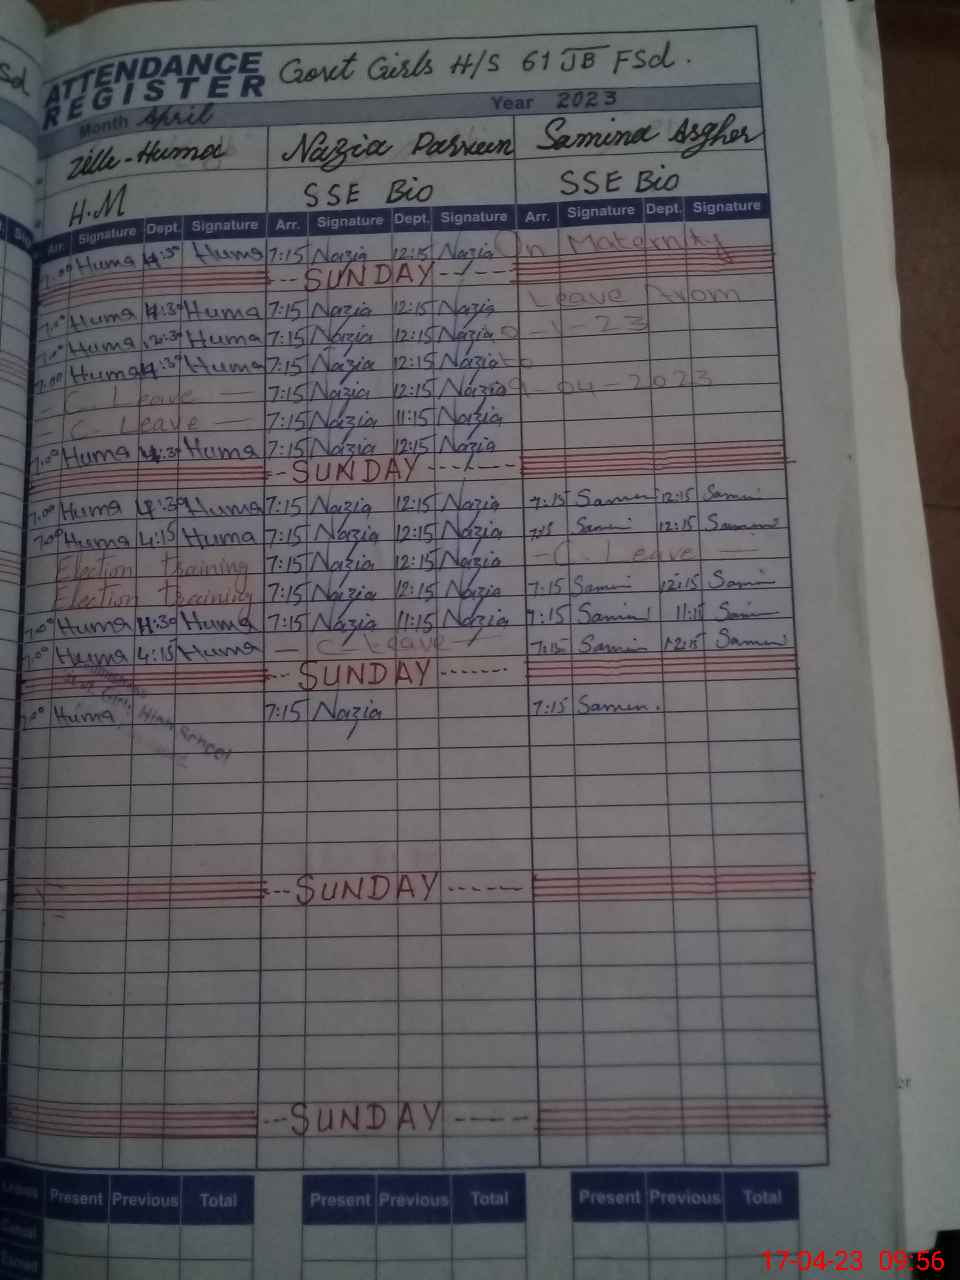 ATTENDANCE REGISTER Govt Girls H/S 61 JB FSd.
Month April Year 2023
Zille-Huma Nazia Parveen Samina Asgher
H.M SSE Bio SSE Bio
Arr. Signature Dept. Signature Arr. Signature Dept. Signature Arr. Signature Dept. Signature
7:00 Huma 4:30 Huma 7:15 Nazia 12:15 Nazia On Maternity
--- SUNDAY -----
7:00 Huma 4:30 Huma 7:15 Nazia 12:15 Nazia Leave from
7:00 Huma 12:30 Huma 7:15 Nazia 12:15 Nazia
7:00 Huma 4:30 Huma 7:15 Nazia 12:15 Nazia to
- C. Leave - 7:15 Nazia 12:15 Nazia 9-04-2023
- C. Leave - 7:15 Nazia 11:15 Nazia
7:00 Huma 4:30 Huma 7:15 Nazia 12:15 Nazia
-- SUNDAY ------
7:00 Huma 4:30 Huma 7:15 Nazia 12:15 Nazia 7:15 Samin 12:15 Samin
7:00 Huma 4:15 Huma 7:15 Nazia 12:15 Nazia 7:15 Samin 12:15 Samin
Election training 7:15 Nazia 12:15 Nazia - C. Leave -
Election training 7:15 Nazia 12:15 Nazia 7:15 Samin 12:15 Samin
7:00 Huma 4:30 Huma 7:15 Nazia 11:15 Nazia 7:15 Samin 11:15 Samin
7:00 Huma 4:15 Huma - C. Leave - 7:15 Samin 12:15 Samin
-- SUNDAY ------
7:00 Huma 7:15 Nazia 7:15 Samin.
High School
-- SUNDAY -----
--- SUNDAY ----
Present Previous Total Present Previous Total Present Previous Total
Casual
Earned
17-04-23 09:56